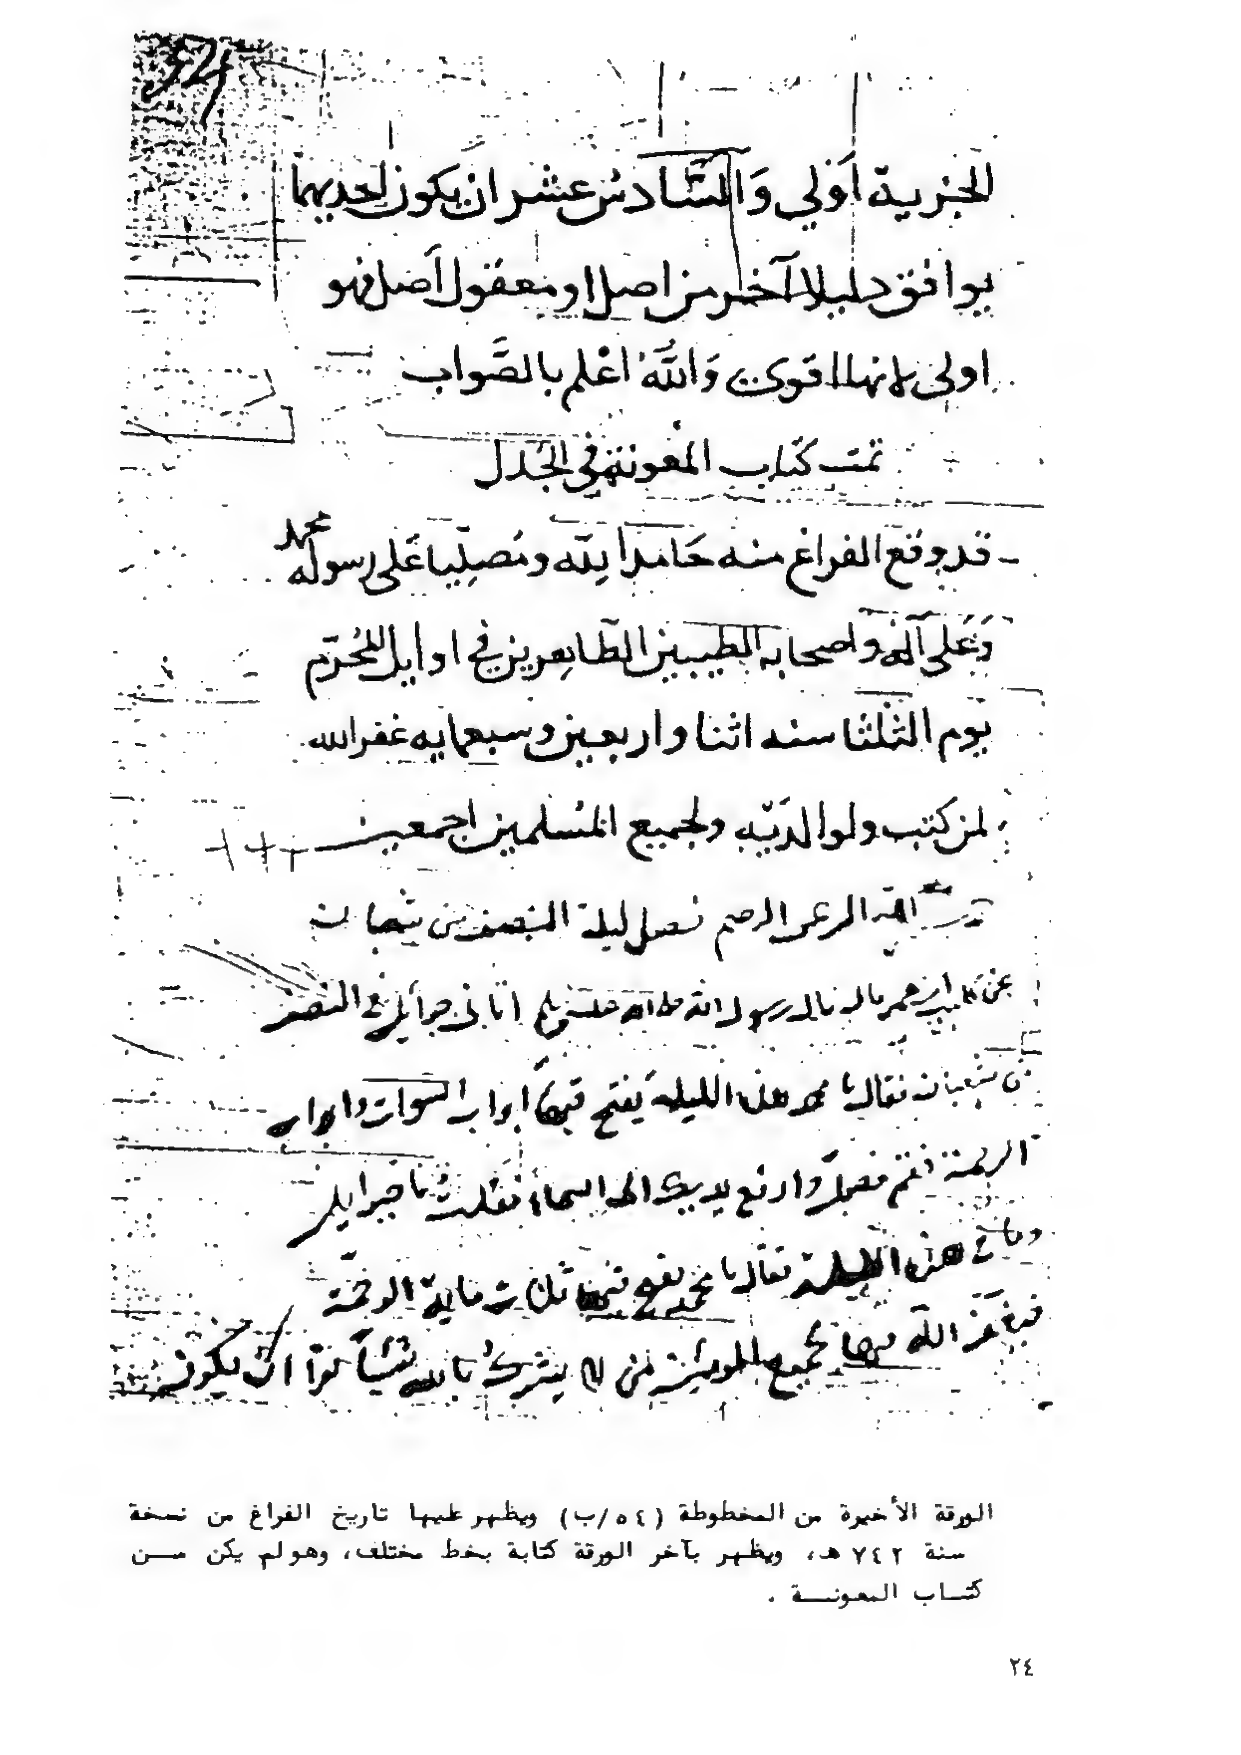 54
الجزية أولي وَالسَّادسْ عشر ان يكون احديهما
يوافق دليلا آخر من اصل او معقول أصل فهو
اولى لانها اقوى وَاللَّهُ اعْلم بالصَّواب
تمت كتاب المعونة في الجَدل
قد وقع الفراغ منه حَامدا لله ومُصلّيا عَلى رسوله محمد
وَعَلى آله واصحابه الطيبين الطَّاهرين في اوايل المحرّم
يوم الثلثا سنه اثنا واربعين وسبعمايه غفر الله
لمن كتب ولوالدَيْه ولجميع المُسلمين اجمعين
الله الرحمن الرحيم فصل ليلة النصف من شعبان
رسول الله صلى الله عليه وسلم اتانى جبرائيل في النصف
من شعبان فقال يا محمد هذه الليلة يفتح فيها ابواب السموات وابواب
الرحمة فقم فصل وارفع يديك الى السماء فقلت يا جبرايل
وما في هذه الليلة فقال يا محمد يفتح فيها ثلاث ماية الرحمة
فيغفر الله فيها لجميع المؤمنين من لا يشرك بالله شيأ الا ان يكون
الورقة الأخيرة من المخطوطة (٥٤/ب) ويظهر عليها تاريخ الفراغ من نسخة
سنة ٧٤٢ هـ، ويظهر بآخر الورقة كتابة بخط مختلف، وهو لم يكن مــن
كتــاب المعونــــة .
٢٤